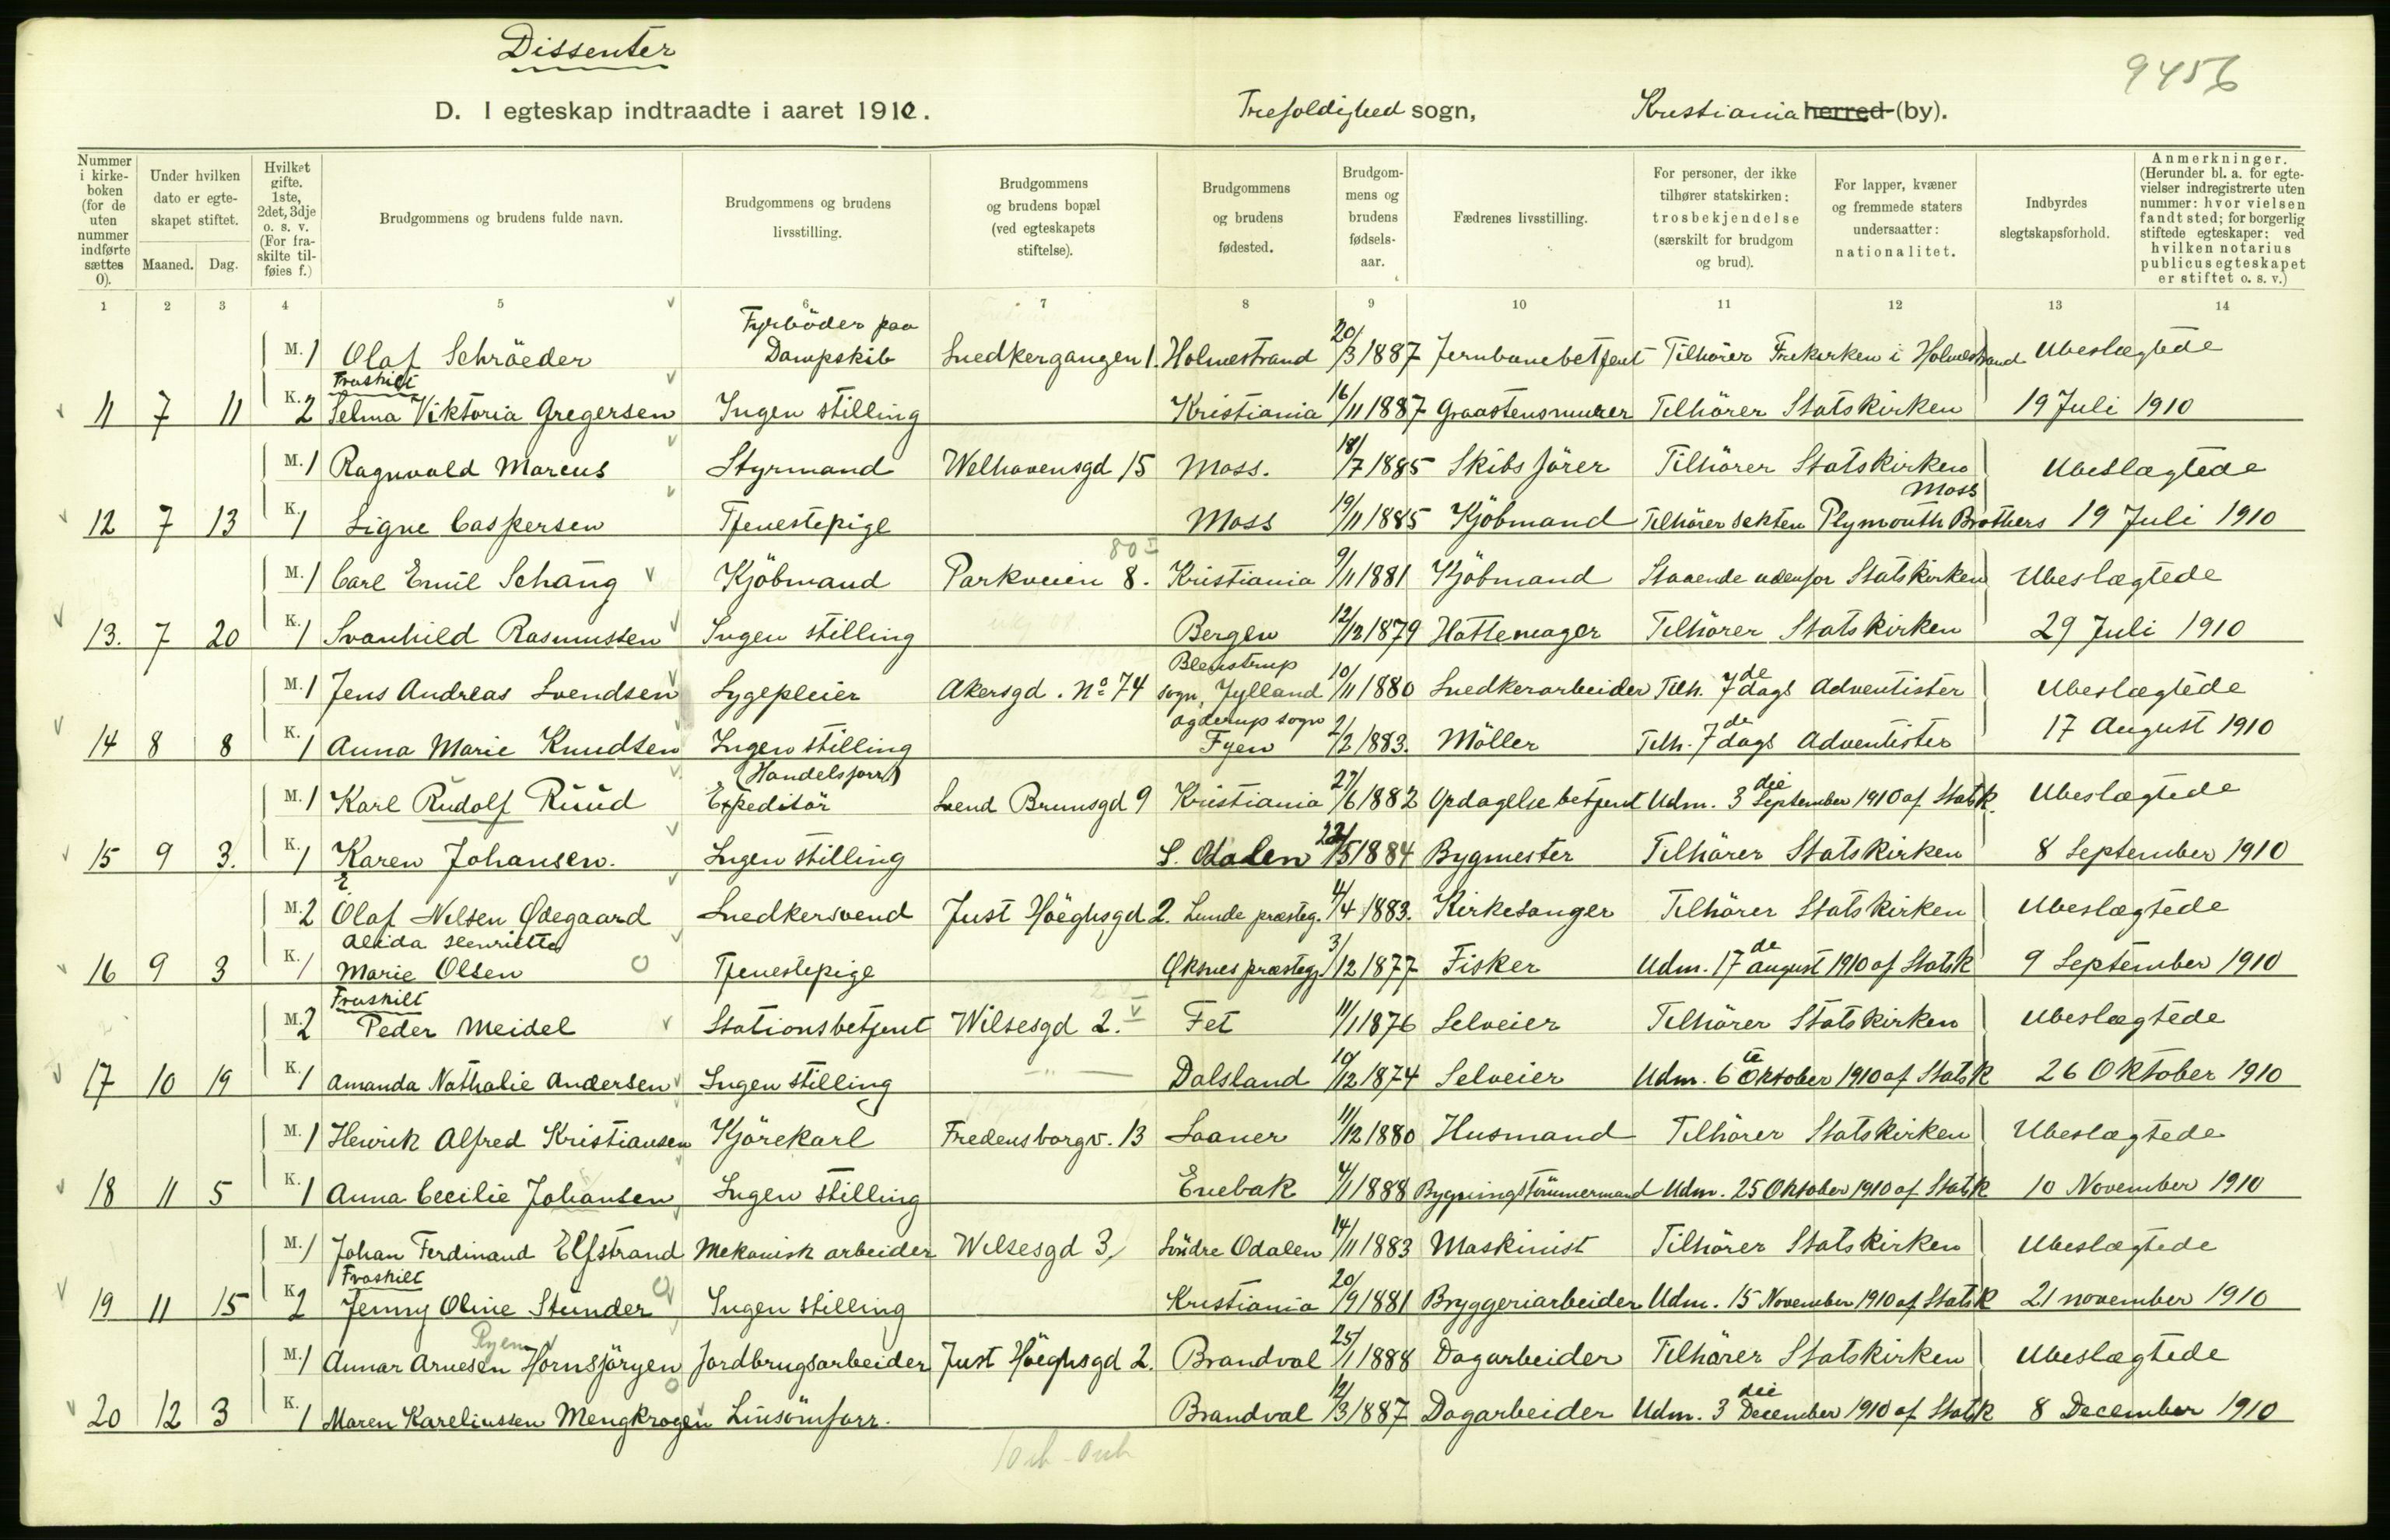 Dissenter
9456
D. I egteskap indtraadte i aaret 1910. Trefoldighed sogn, Kristiania herred (by).
Nummer i kirkeboken (for de uten nummer indførte sættes 0).
Under hvilken dato er egteskapet stiftet.
Maaned. Dag.
Hvilket gifte. 1ste, 2det, 3dje o. s. v. (For fraskilte tilføies f.)
Brudgommens og brudens fulde navn.
Brudgommens og brudens livsstilling.
Brudgommens og brudens bopæl (ved egteskapets stiftelse).
Brudgommens og brudens fødested.
Brudgommens og brudens fødselsaar.
Fædrenes livsstilling.
For personer, der ikke tilhører statskirken: trosbekjendelse (særskilt for brudgom og brud).
For lapper, kvæner og fremmede staters undersaatter: nationalitet.
Indbyrdes slegtskapsforhold.
Anmerkninger. (Herunder bl. a. for egtevielser indregistrerte uten nummer: hvor vielsen fandt sted; for borgerlig stiftede egteskaper: ved hvilken notarius publicus egteskapet er stiftet o. s. v.)
1 2 3 4 5 6 7 8 9 10 11 12 13 14
M. 1 Olaf Schröeder Fyrböder paa Dampskib Snedkergangen 1. Holmestrand 20/3 1887 Jernbanebetjent Tilhörer Frikirken i Holmestrand Ubeslægtede
11 7 11 K. 2 Fraskilt Selma Viktoria Gregersen Ingen stilling Kristiania 16/11 1887 Graastensmurer Tilhörer Statskirken 19 Juli 1910
M. 1 Ragnvald Marcus Styrmand Welhavensgd 15 Moss. 18/7 1885 Skibsförer Tilhörer Statskirken Ubeslægtede
12 7 13 K. 1 Signe Caspersen Tjenestepige Moss 19/11 1885 Kjöbmand Tilhörer sekten Plymouth Brothers Moss 19 Juli 1910
M. 1 Carl Emil Schang Kjöbmand Parkveien 8. 80 I Kristiania 9/11 1881 Kjöbmand Staaende udenfor Statskirken Ubeslægtede
13. 7 20 K. 1 Svanhild Rasmussen Ingen stilling Bergen 12/12 1879 Hattemager Tilhörer Statskirken 29 Juli 1910
M. 1 Jens Andreas Svendsen Sygepleier Akersgd. No 74 Blenstrup sogn, Jylland 10/11 1880 Snedkerarbeider Tilh. 7de dags Adventister Ubeslægtede
14 8 8 K. 1 Anna Marie Knudsen Ingen stilling Agderup sogn Fyen 2/2 1883. Möller Tilh. 7de dags Adventister 17 August 1910
M. 1 Karl Rudolf Ruud Expeditör (Handelsforr) Svend Brunsgd 9 Kristiania 27/6 1882 Opdagelsebetjent Udm. 3die September 1910 af Statsk. Ubeslægtede
15 9 3. K. 1 Karen Johansen. Ingen stilling S. Odalen 22/5 1884 Bygmester Tilhörer Statskirken 8 September 1910
M. 2 E Olaf Nilsen Ødegaard Snedkersvend Just Höeghsgd 2. Lunde præsteg. 4/4 1883. Kirkesanger Tilhörer Statskirken Ubeslægtede
16 9 3 K. 1 Alida Henriette Marie Olsen Tjenestepige Øksnes præstegj. 3/12 1877 Fisker Udm. 17de august 1910 af Statsk 9 September 1910
M. 2 Fraskilt Peder Meidel Stationsbetjent Wilsesgd 2. V Fet 11/1 1876 Selveier Tilhörer Statskirken Ubeslægtede
17 10 19 K. 1 Amanda Nathalie Andersen Ingen stilling —"— Dalsland 10/12 1874 Selveier Udm. 6te Oktober 1910 af Statsk 26 Oktober 1910
M. 1 Henrik Alfred Kristiansen Kjörekarl Fredensborgv. 13 Saaner 11/12 1880 Husmand Tilhörer Statskirken Ubeslægtede
18 11 5 K. 1 Anna Cecilie Johansen Ingen stilling Enebak 4/1 1888 Bygningstömmermand Udm. 25 Oktober 1910 af Statsk 10 November 1910
M. 1 Johan Ferdinand Elfstrand Mekanisk arbeider Wilsesgd 3, Söndre Odalen 14/11 1883 Maskinist Tilhörer Statskirken Ubeslægtede
19 11 15 K. 2 Fraskilt Jenny Oline Stunder Ingen stilling Kristiania 20/9 1881 Bryggeriarbeider Udm. 15 November 1910 af Statsk 21 november 1910
M. 1 Annar Arnesen Hornsjöryen Ryen Jordbrugsarbeider Just Höeghsgd 2. Brandval 25/1 1888 Dagarbeider Tilhörer Statskirken Ubeslægtede
20 12 3 K. 1 Maren Kareliussen Mengkrogen Linsömforr. Brandval 12/3 1887 Dagarbeider Udm. 3die December 1910 af Statsk 8 December 1910